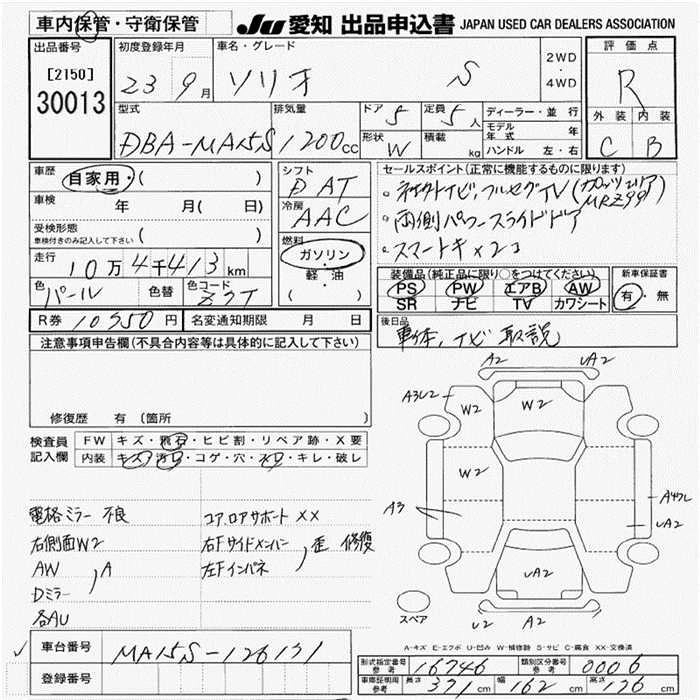 車内保管・守衛保管
JU 愛知 出品申込書 JAPAN USED CAR DEALERS ASSOCIATION
出品番号
[2150]
30013
初度登録年月
23 9月
車名・グレード
ソリオ S
2WD
・
4WD
評価点
R
外装 内装
C B
型式
DBA-MA15S
排気量
1200cc
ドア 5
定員 5人
形状 W
積載 kg
ディーラー・並行
モデル年式 年
ハンドル 左・右
車歴 自家用・( )
車検 年 月( 日)
受検形態
車検付きのみ記入して下さい ( )
走行 10万4千413km
色 パール 色替 色コード Z7T
シフト
DAT
冷房
AAC
燃料
ガソリン
・
軽・油
( )
セールスポイント(正常に機能するものに限ります)
・社外ナビ、フルセグTV(カロッツェリア MRZ99)
・両側パワースライドドア
・スマートキー×2コ
装備品(純正品に限り○をつけてください)
PS PW エアB AW
SR ナビ TV カワシート
新車保証書
有・無
R券 10350円 名変通知期限 月 日
後日品
車体、ナビ 取説
注意事項申告欄(不具合内容等は具体的に記入して下さい)
修復歴 有 〔箇所 〕
検査員記入欄
FW キズ・飛石・ヒビ割・リペア跡・X要
内装 キズ・汚れ・コゲ・穴・スレ・キレ・破レ
電格ミラー 不良
右側面W2
AW
Dミラー 、A
各AU
コア、ロアサポート XX
右Fサイドメンバー
左Fインパネ 、歪 修復
A2 UA2
A3U2
W2 W2
W2
A3
UA2
UA2
U2 A2
スペア
A-キズ E-エクボ U-凹み W-補修跡 S-サビ C-腐食 XX-交換済
車台番号 MA15S-126131
登録番号
型式指定番号参考 16746
類別区分番号参考 0006
車庫証明用参考 長さ 371cm 幅 162cm 高さ 176cm